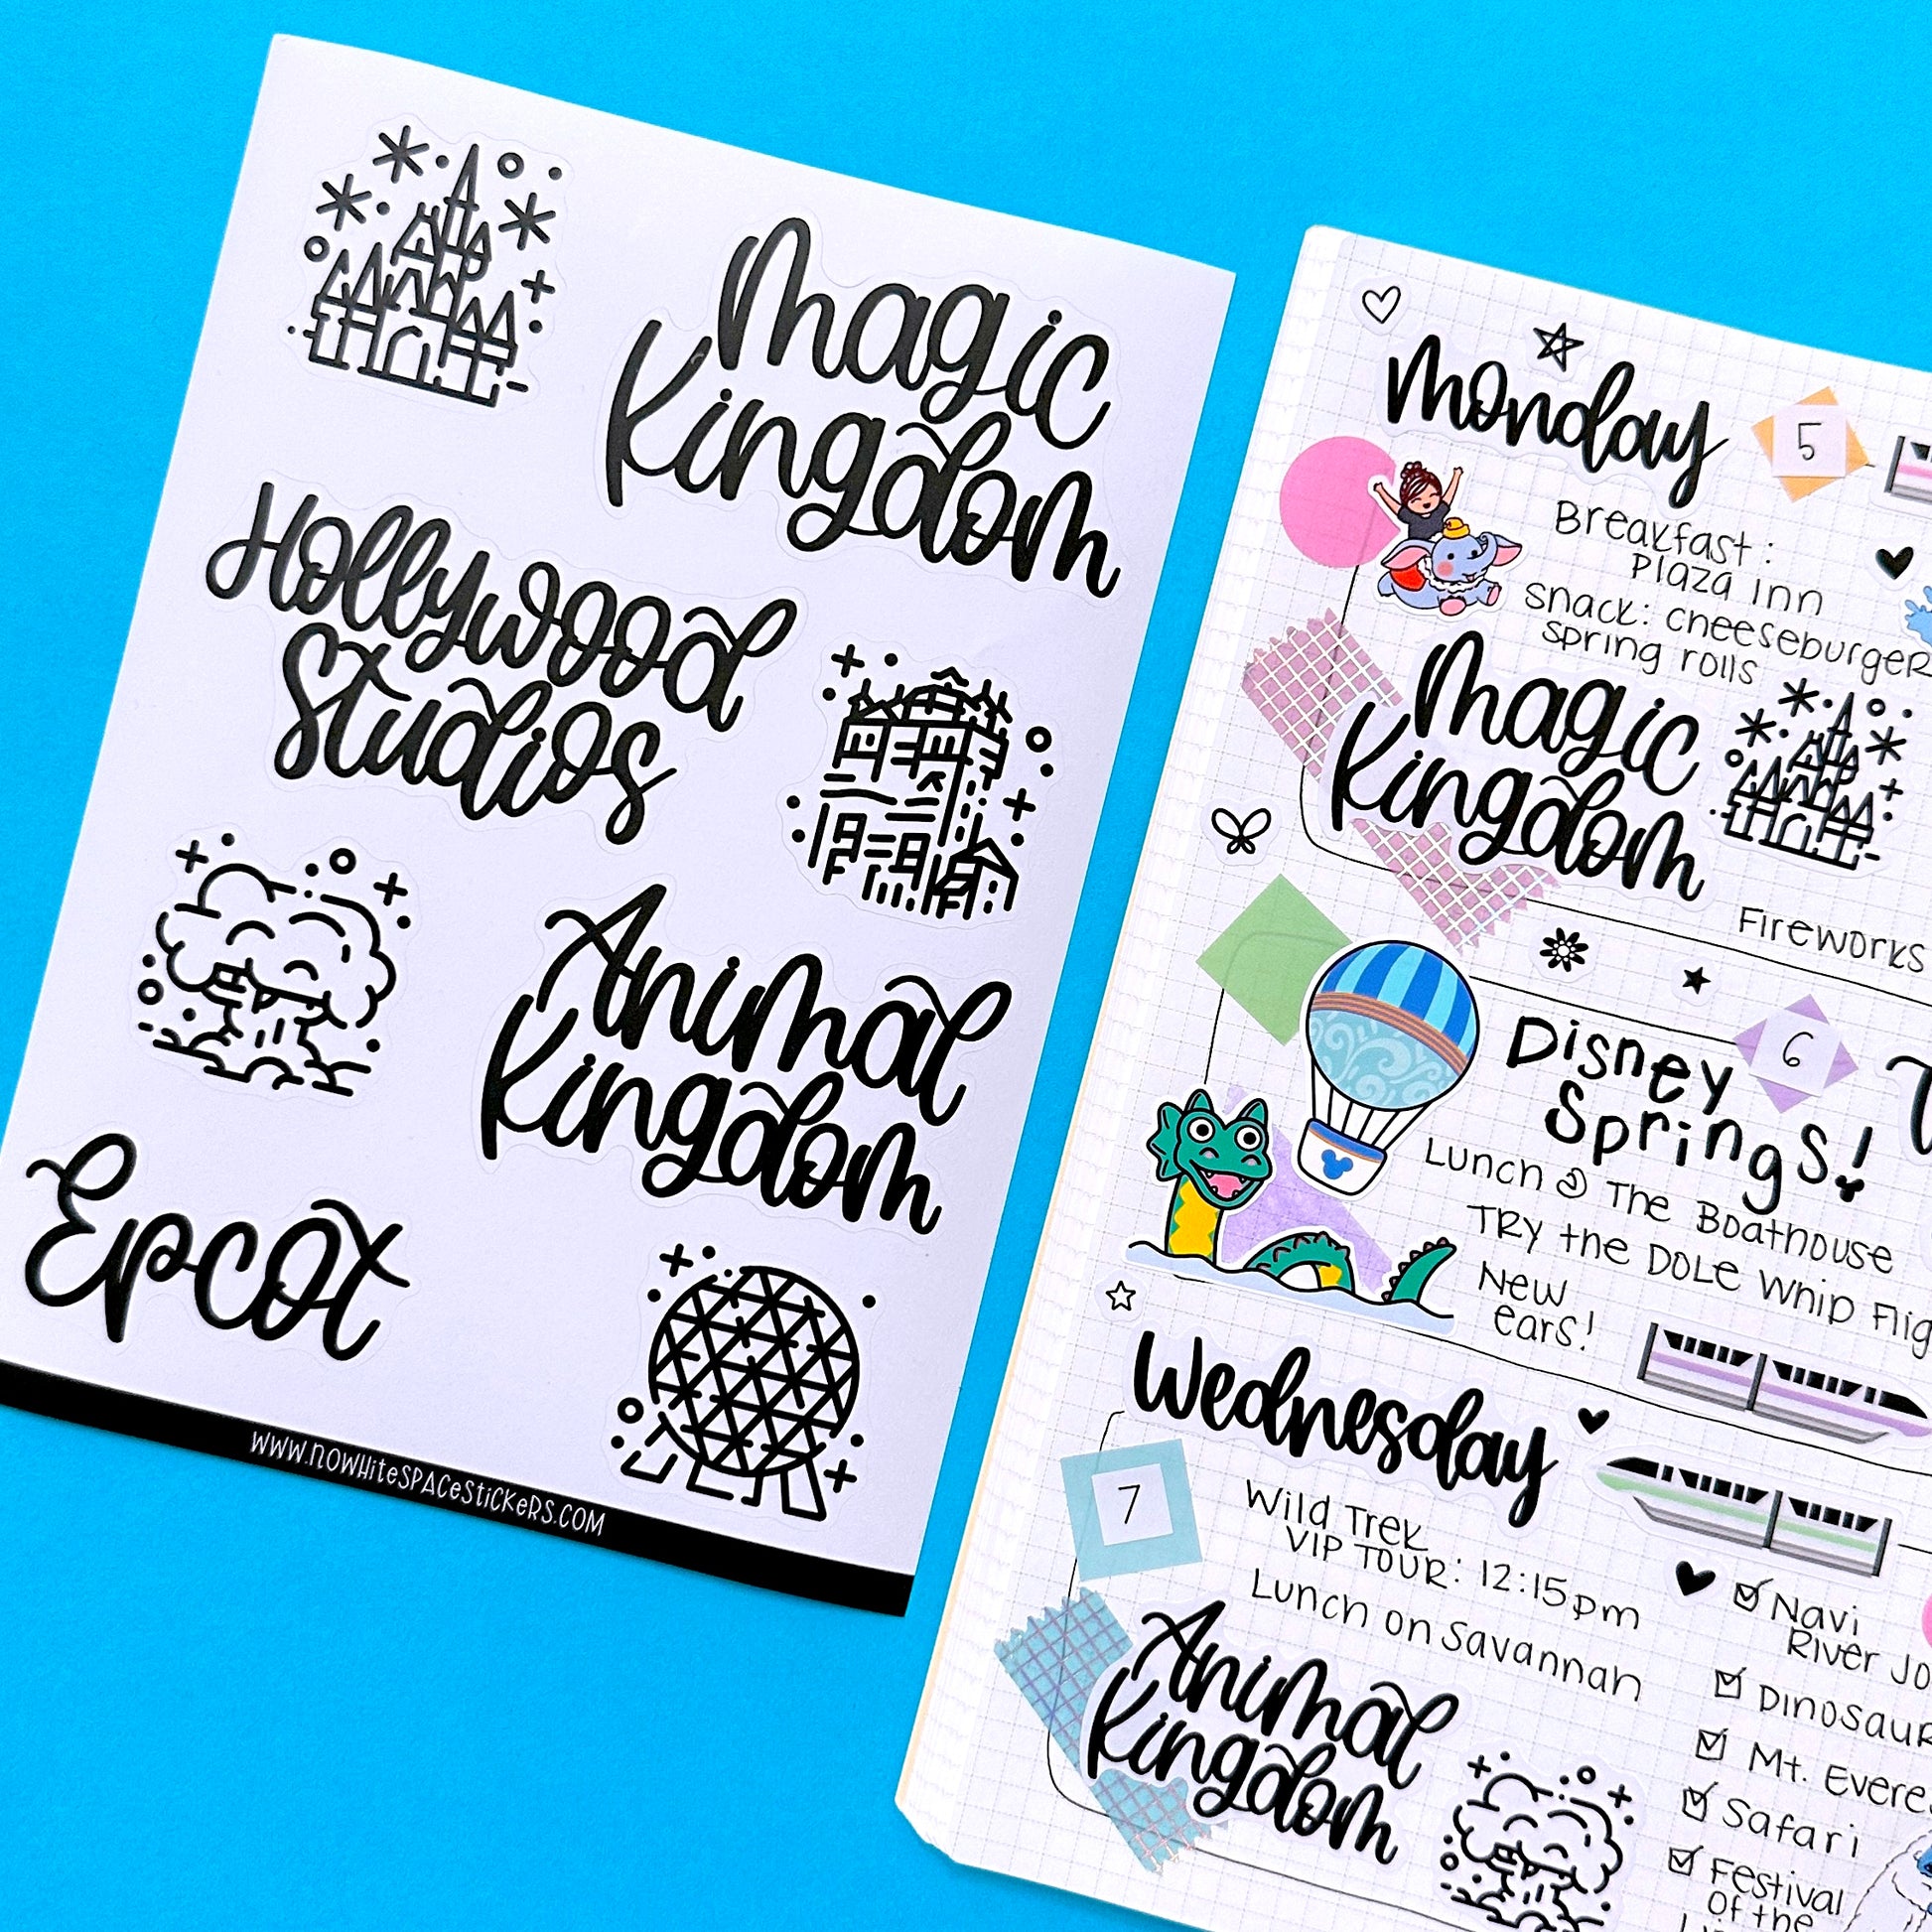 Magic
Kingdom
Hollywood
Studios
Animal
Kingdom
Epcot
www.NOWHITESPACESTICKERS.COM
Monday
5
Breakfast:
Plaza Inn
Snack: Cheeseburger
Spring rolls
Magic
Kingdom
Fireworks
Disney
Springs!
6
Lunch @ The Boathouse
Try the DOLE Whip
New
ears!
Wednesday
7
Wild Trek
VIP TOUR: 12:15pm
Lunch on Savannah
Animal
Kingdom
Navi
River
Mt.
Safari
Festival
of the